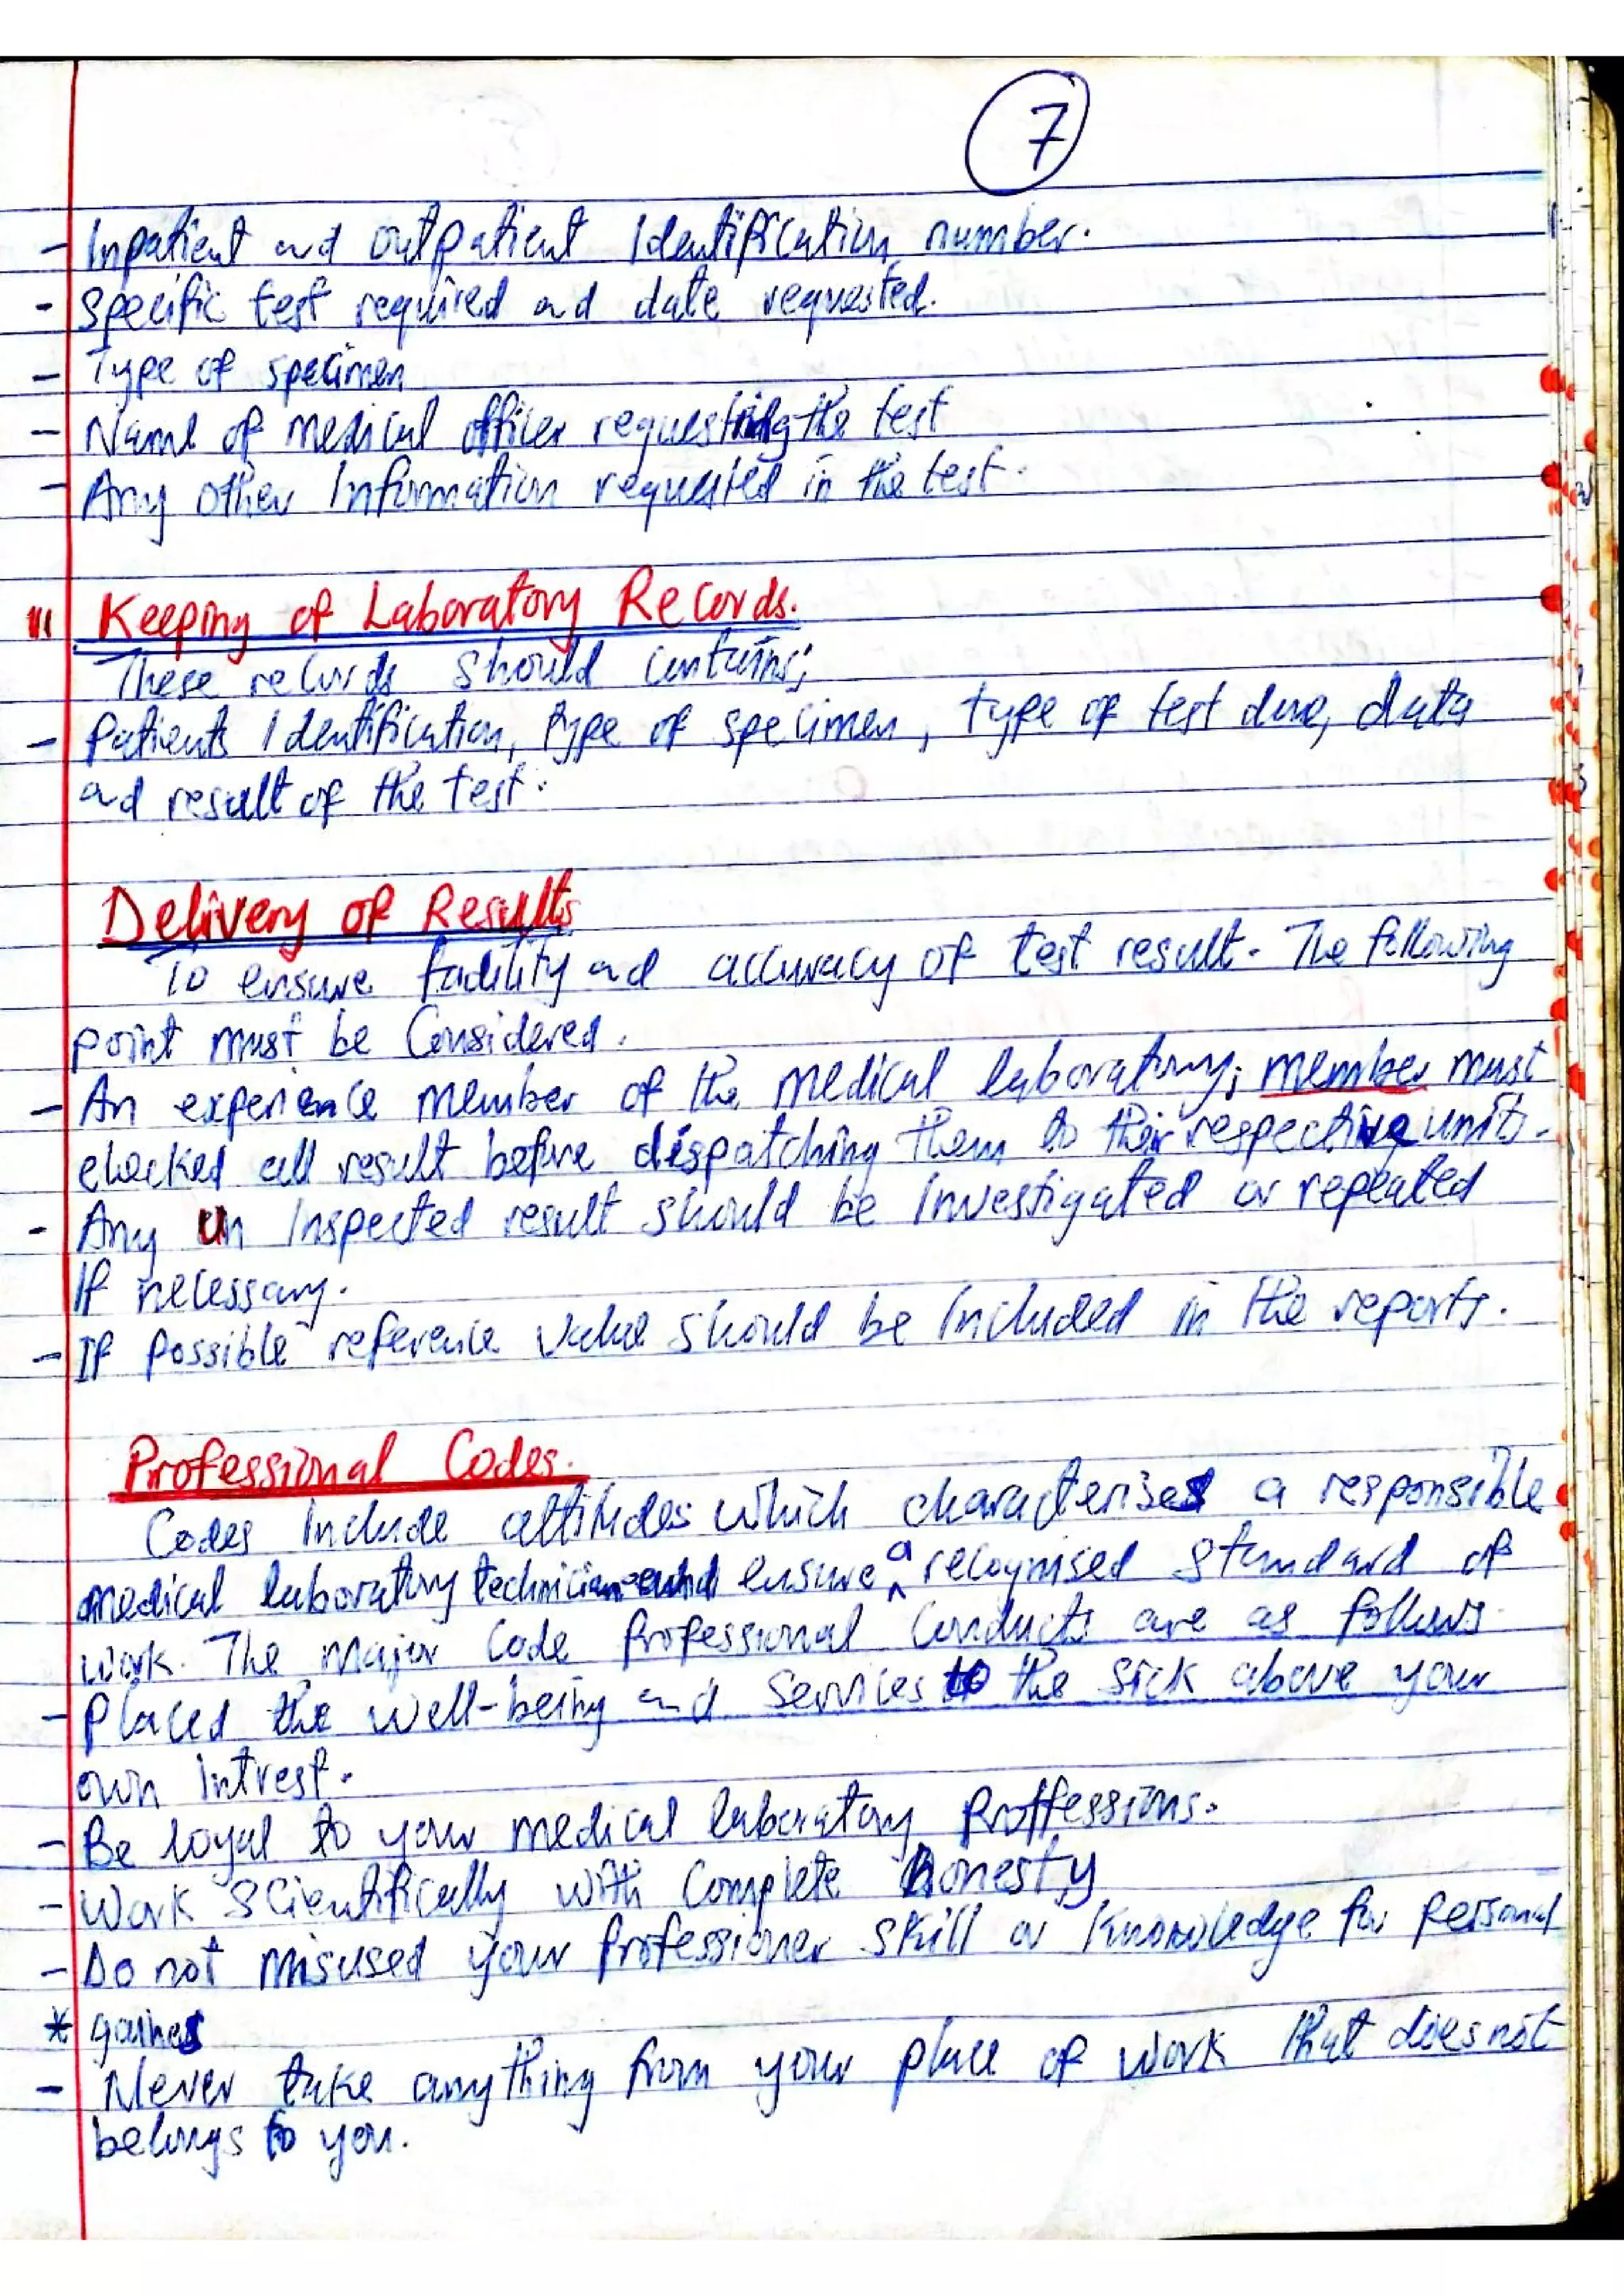 7
- Inpatient and outpatient Identification number.
- Specific test required and date requested.
- Type of specimen
- Name of medical officer requesting the test
- Any other Information requested in the test.
III Keeping of Laboratory Records.
These records should contains;
- Patients Identification, type of specimen, type of test done, data
and result of the test.
Delivery of Results
To ensure facility and accuracy of test result. The following
point must be Considered.
- An experience member of the medical laboratory; member must
checked all result before dispatching them to their respective units.
- Any un Inspected result should be Investigated or repeated
If necessary.
- If possible reference value should be Included in the reports.
Professional Codes.
Codes Include attitudes which characterises a responsible
medical laboratory technician and ensure a recognised standard of
work. The major Code Professional Conducts are as follows
- Placed the well-being and services to the sick above your
own intrest.
- Be loyal to your medical laboratory Proffessions.
- Work Scientifically with Complete Honesty
- Do not misused your Professioner skill or Knowledge for Personal
* gaines
- Never take anything from your place of work that does not
belongs to you.